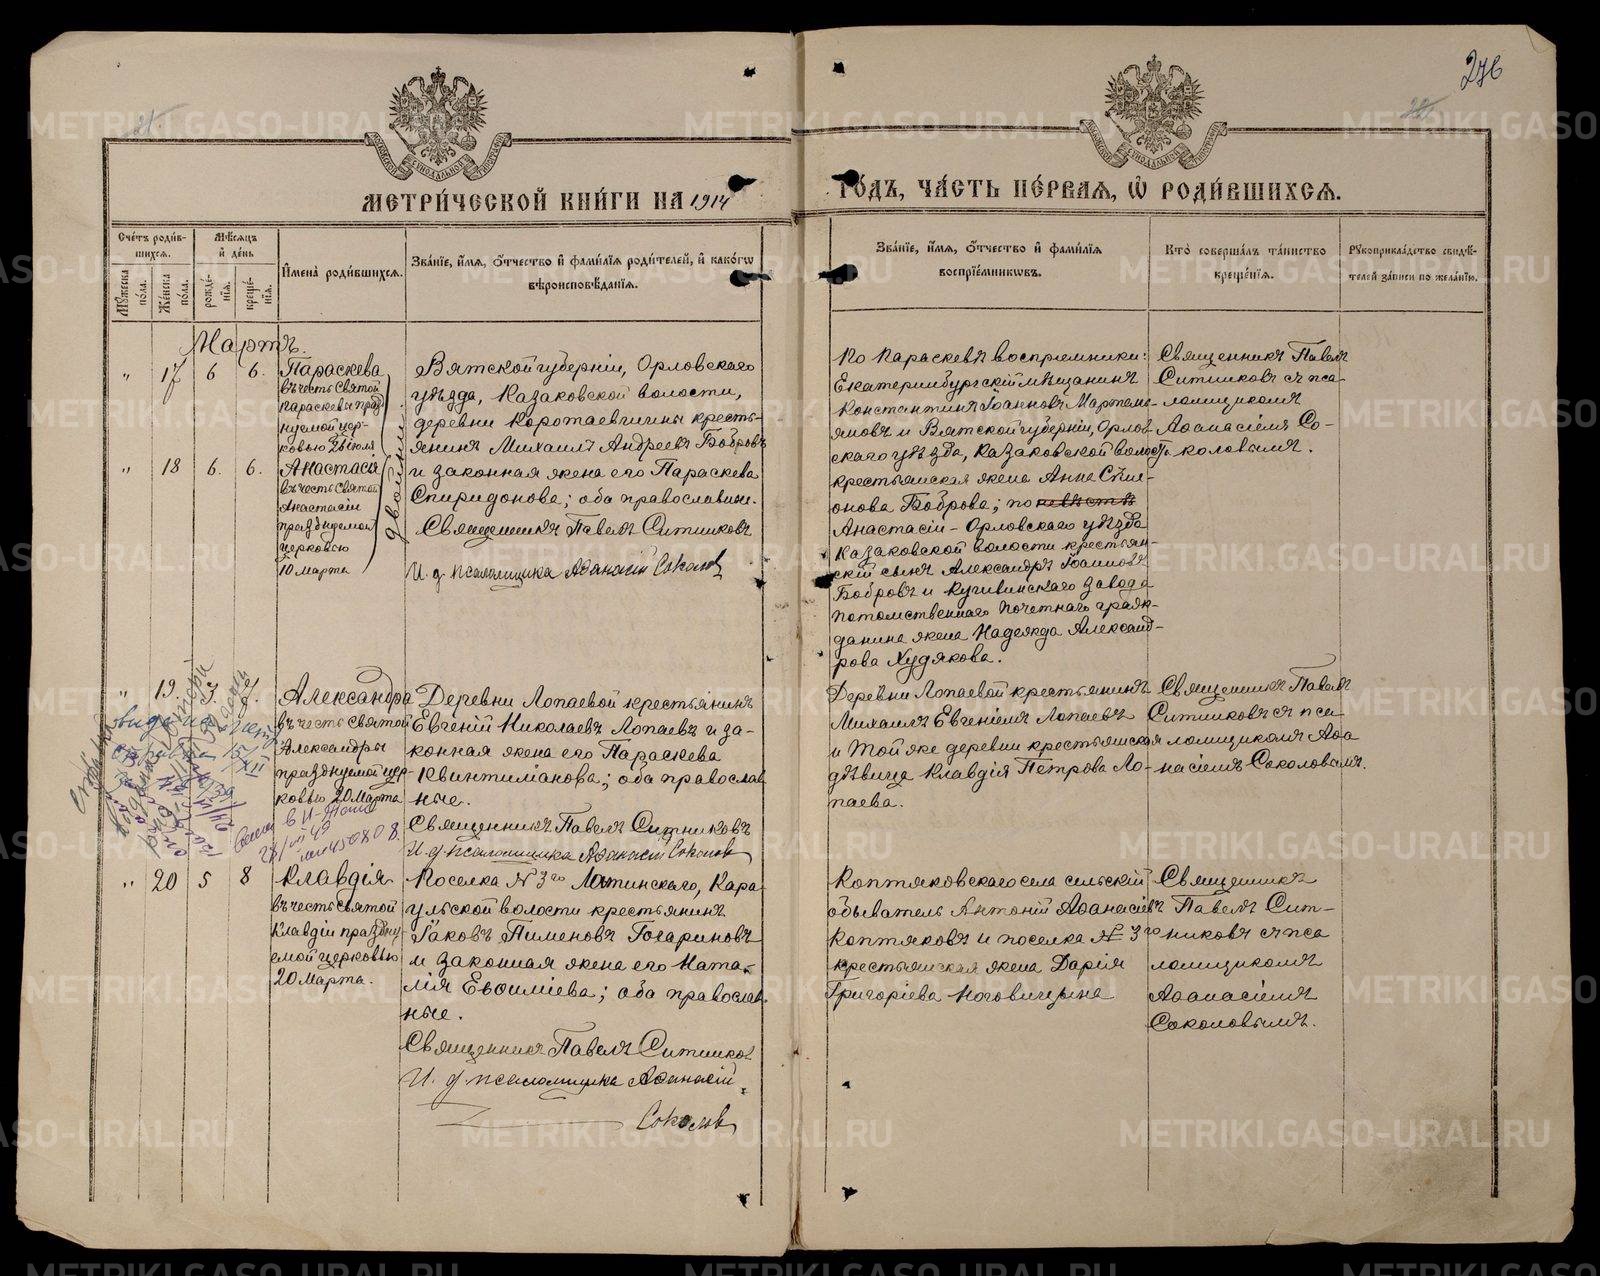 276
МЕТРИ́ЧЕСКОЙ КНИ́ГИ НА 1914
ГО́ДЪ, ЧА́СТЬ ПЕ́РВАЯ, Ѡ҆ РОДИ́ВШИХСЯ.
Сче́тъ роди́в-
шихся.
Мꙋ́жеска
по́ла.
Же́нска
по́ла.
Мѣ́сяцъ
и҆ де́нь
рожде́-
нїя.
креще́-
нїя.
И҆мена̀ роди́вшихся.
Зва́нїе, и҆́мя, ѻ҆́тчество и҆ фами́лїя роди́телей, и҆ како́гѡ
вѣроисповѣ́данїя.
Зва́нїе, и҆́мя, ѻ҆́тчество и҆ фами́лїя
воспрїе́мникѡвъ.
Кто̀ соверша́лъ та́инство
креще́нїя.
Рꙋкоприкла́дство свидѣ́-
телей за́писи по жела́нїю.
Мартъ.
" 17 6 6.
Параскева
въ честь Святой
Параскевы празд-
нуемой цер-
ковью 26 Іюля
" 18 6. 6.
Анастасія
въ честь Святой
Анастасіи
празднуемой
церковью
10 Марта
двойни.
Вятской губерніи, Орловскаго
уѣзда, Казаковской волости,
деревни Коротаевщины кресть-
янинъ Михаилъ Андреевъ Бобровъ
и законная жена его Параскева
Спиридонова; оба православные.
Священникъ Павелъ Ситниковъ
И. д. псаломщика Аѳанасій Соколовъ
По Параскевѣ воспріемники:
Екатеринбургскій мѣщанинъ
Константинъ Іоанновъ Мартемь-
яновъ и Вятской губерніи, Орлов-
скаго уѣзда, Казаковской волости
крестьянская жена Анна Сѵме-
онова Боброва; по
Анастасіи - Орловскаго уѣзда
Казаковской волости крестьян-
скій сынъ Александръ Іоанновъ
Бобровъ и Кушвинскаго завода
потомственнаго почетнаго граж-
данина жена Надежда Александ-
рова Худякова.
Священникъ Павелъ
Ситниковъ съ пса-
ломщикомъ
Аѳанасіемъ Со-
коловымъ.
" 19.
Александра
въ честь Святой
Александры
празднуемой цер-
ковью 20 Марта
Деревни Лопаевой крестьянинъ
Евгеній Николаевъ Лопаевъ и за-
конная жена его Параскева
Квинтиліанова; оба православ-
ные.
Священникъ Павелъ Ситниковъ
И. д. псаломщика Аѳанасій Соколовъ
Деревни Лопаевой крестьянинъ
Михаилъ Евгеніевъ Лопаевъ
и той же деревни крестьянская
дѣвица Клавдія Петрова Ло-
паева.
Священникъ Павелъ
Ситниковъ съ пса
ломщикомъ Аѳа
насіемъ Соколовымъ.
" 20 5 8
Клавдія
въ честь Святой
Клавдіи праздну-
емой церковью
20 Марта.
Поселка № 3го Лятинскаго, Кара-
ульской волости крестьянинъ
Іаковъ Пименовъ Гогариновъ
и законная жена его Ната-
лія Евѳиміева; оба православ-
ные.
Священникъ Павелъ Ситниковъ
И. д. псаломщика Аѳанасій
Соколовъ
Коптяковскаго села сельскій
обыватель Антоній Аѳанасіевъ
Коптяковъ и поселка № 3го
крестьянская жена Дарія
Григоріева Ноговицына
Священникъ
Павелъ Сит-
никовъ съ пса
ломщикомъ
Аѳанасіемъ
Соколовымъ.
METRIKI.GASO-URAL.RU